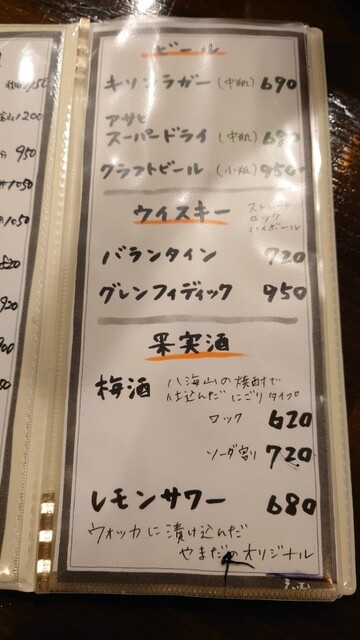 ビール
キリンラガー（中瓶）690
アサヒ
スーパードライ（中瓶）
クラフトビール（小瓶）950
ウイスキー
ストレート
ロック
ハイボール
バランタイン 720
グレンフィディック 950
果実酒
梅酒 八海山の焼酎で
仕込んだにごりタイプ
ロック 620
ソーダ割り 720
レモンサワー 680
ウォッカに漬け込んだ
やまだのオリジナル
1200
950
1050
1050